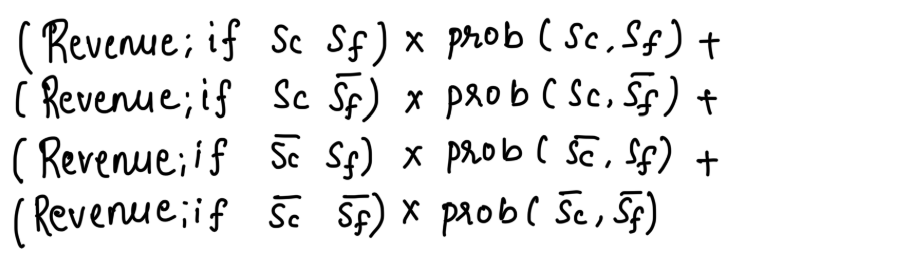 (Revenue; if Sc Sf) × prob(Sc, Sf) +
(Revenue; if Sc S̅f̅) × prob(Sc, S̅f̅) +
(Revenue; if S̅c̅ Sf) × prob(S̅c̅, Sf) +
(Revenue; if S̅c̅ S̅f̅) × prob(S̅c̅, S̅f̅)